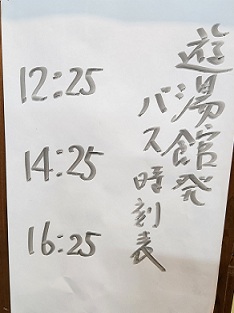 遊湯館発
バス時刻表
12:25
14:25
16:25